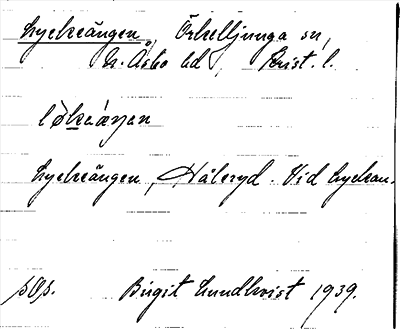 Lyckeängen, Örkelljunga sn,
N. Åsbo hd, Krist. l.
løkeàŋen
Lyckeängen, Hålsryd. Vid lyckan.
sOs. Birgit Lundkvist 1939.